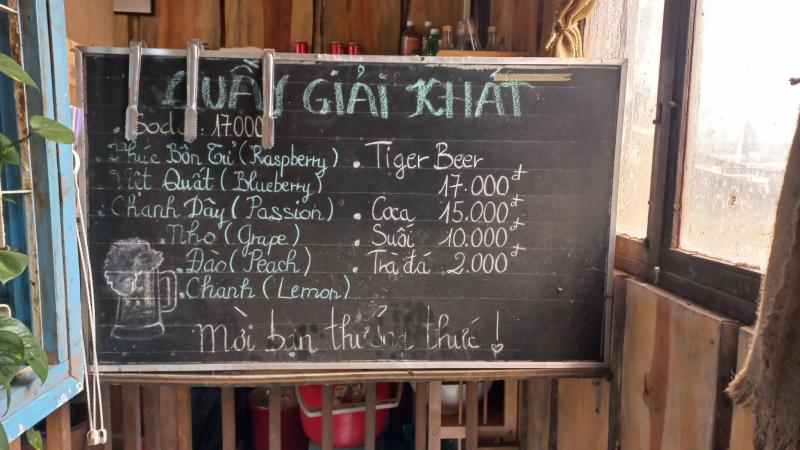 QUẦY GIẢI KHÁT
. Soda : 17000
Phúc Bồn Tử (Raspberry)
Việt Quất (Blueberry)
. Chanh Dây (Passion)
. Nho (Grape)
. Đào (Peach)
. Chanh (Lemon)
. Tiger Beer
17.000đ
. Coca 15.000đ
. Suối 10.000đ
. Trà đá 2.000đ
Mời bạn thưởng thức !